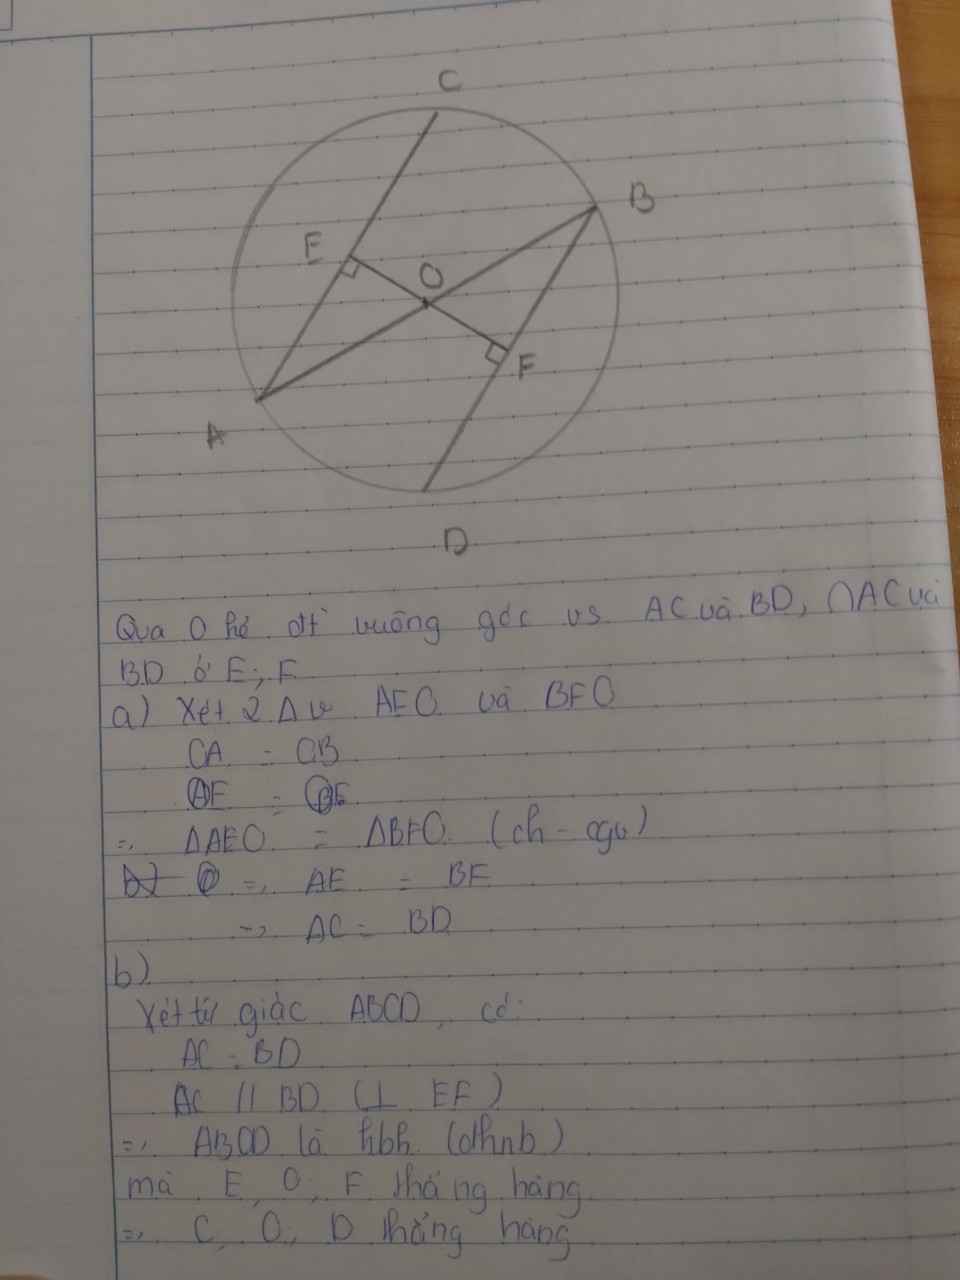 C
B
E
O
F
A
D
Qua O kẻ đt vuông góc vs AC và BD, ∩ AC và
BD ở E; F
a) Xét 2 Δ v AEO và BFO
OA = OB
=> ΔAEO = ΔBFO (ch - cgv)
=> AE = BF
=> AC = BD
b)
Xét tứ giác ABCD, có:
AC = BD
AC // BD (⊥ EF)
=> ABCD là hbh (dhnb)
mà E, O, F thẳng hàng
=> C, O, D thẳng hàng